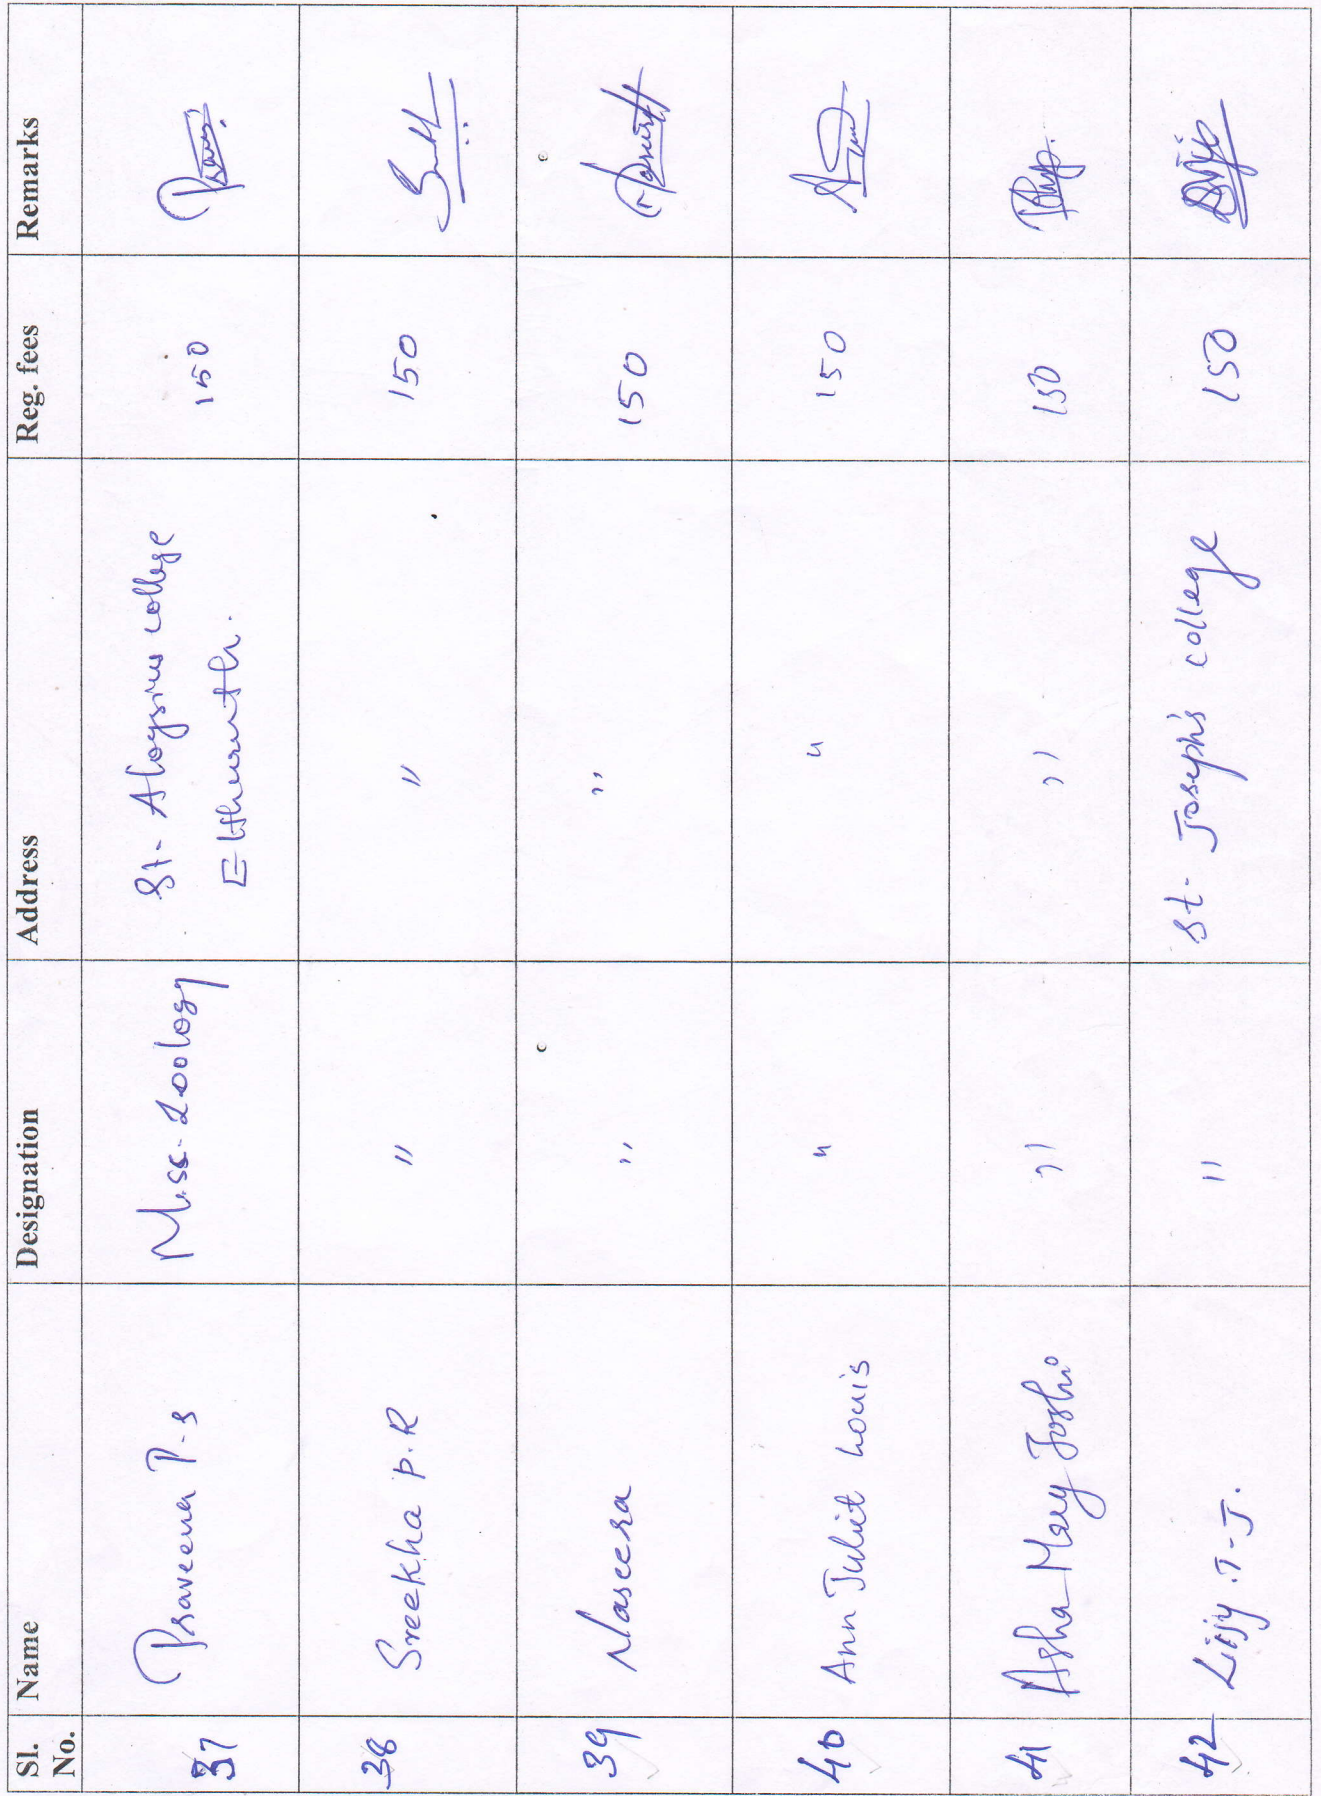 Sl. No. Name Designation Address Reg. fees Remarks
37 Praveena P-S M.sc. Zoology St- Aloysius college 150
Elthuruth.
38 Sreekha P.R " " 150
39 Naseera " " 150
40 Ann Juliet Louis " " 150
41 Asha Mary Joshi " " 150
42 Lijy .T-J. " St- Joseph's college 150